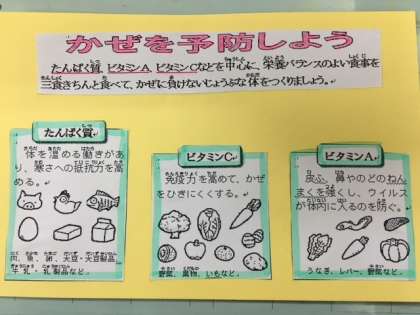 かぜを予防しよう
たんぱく質、ビタミンA、ビタミンCなどを中心に、栄養バランスのよい食事を
三食きちんと食べて、かぜに負けないじょうぶな体をつくりましょう。
たんぱく質
体を温める働きがあ
り、寒さへの抵抗力を高
める。
肉、魚、卵、大豆・大豆製品、
牛乳・乳製品など。
ビタミンC
免疫力を高めて、かぜ
をひきにくくする。
野菜、果物、いもなど。
ビタミンA
皮ふ、鼻やのどのねん
まくを強くし、ウイルス
が体内に入るのを防ぐ。
うなぎ、レバー、野菜など。